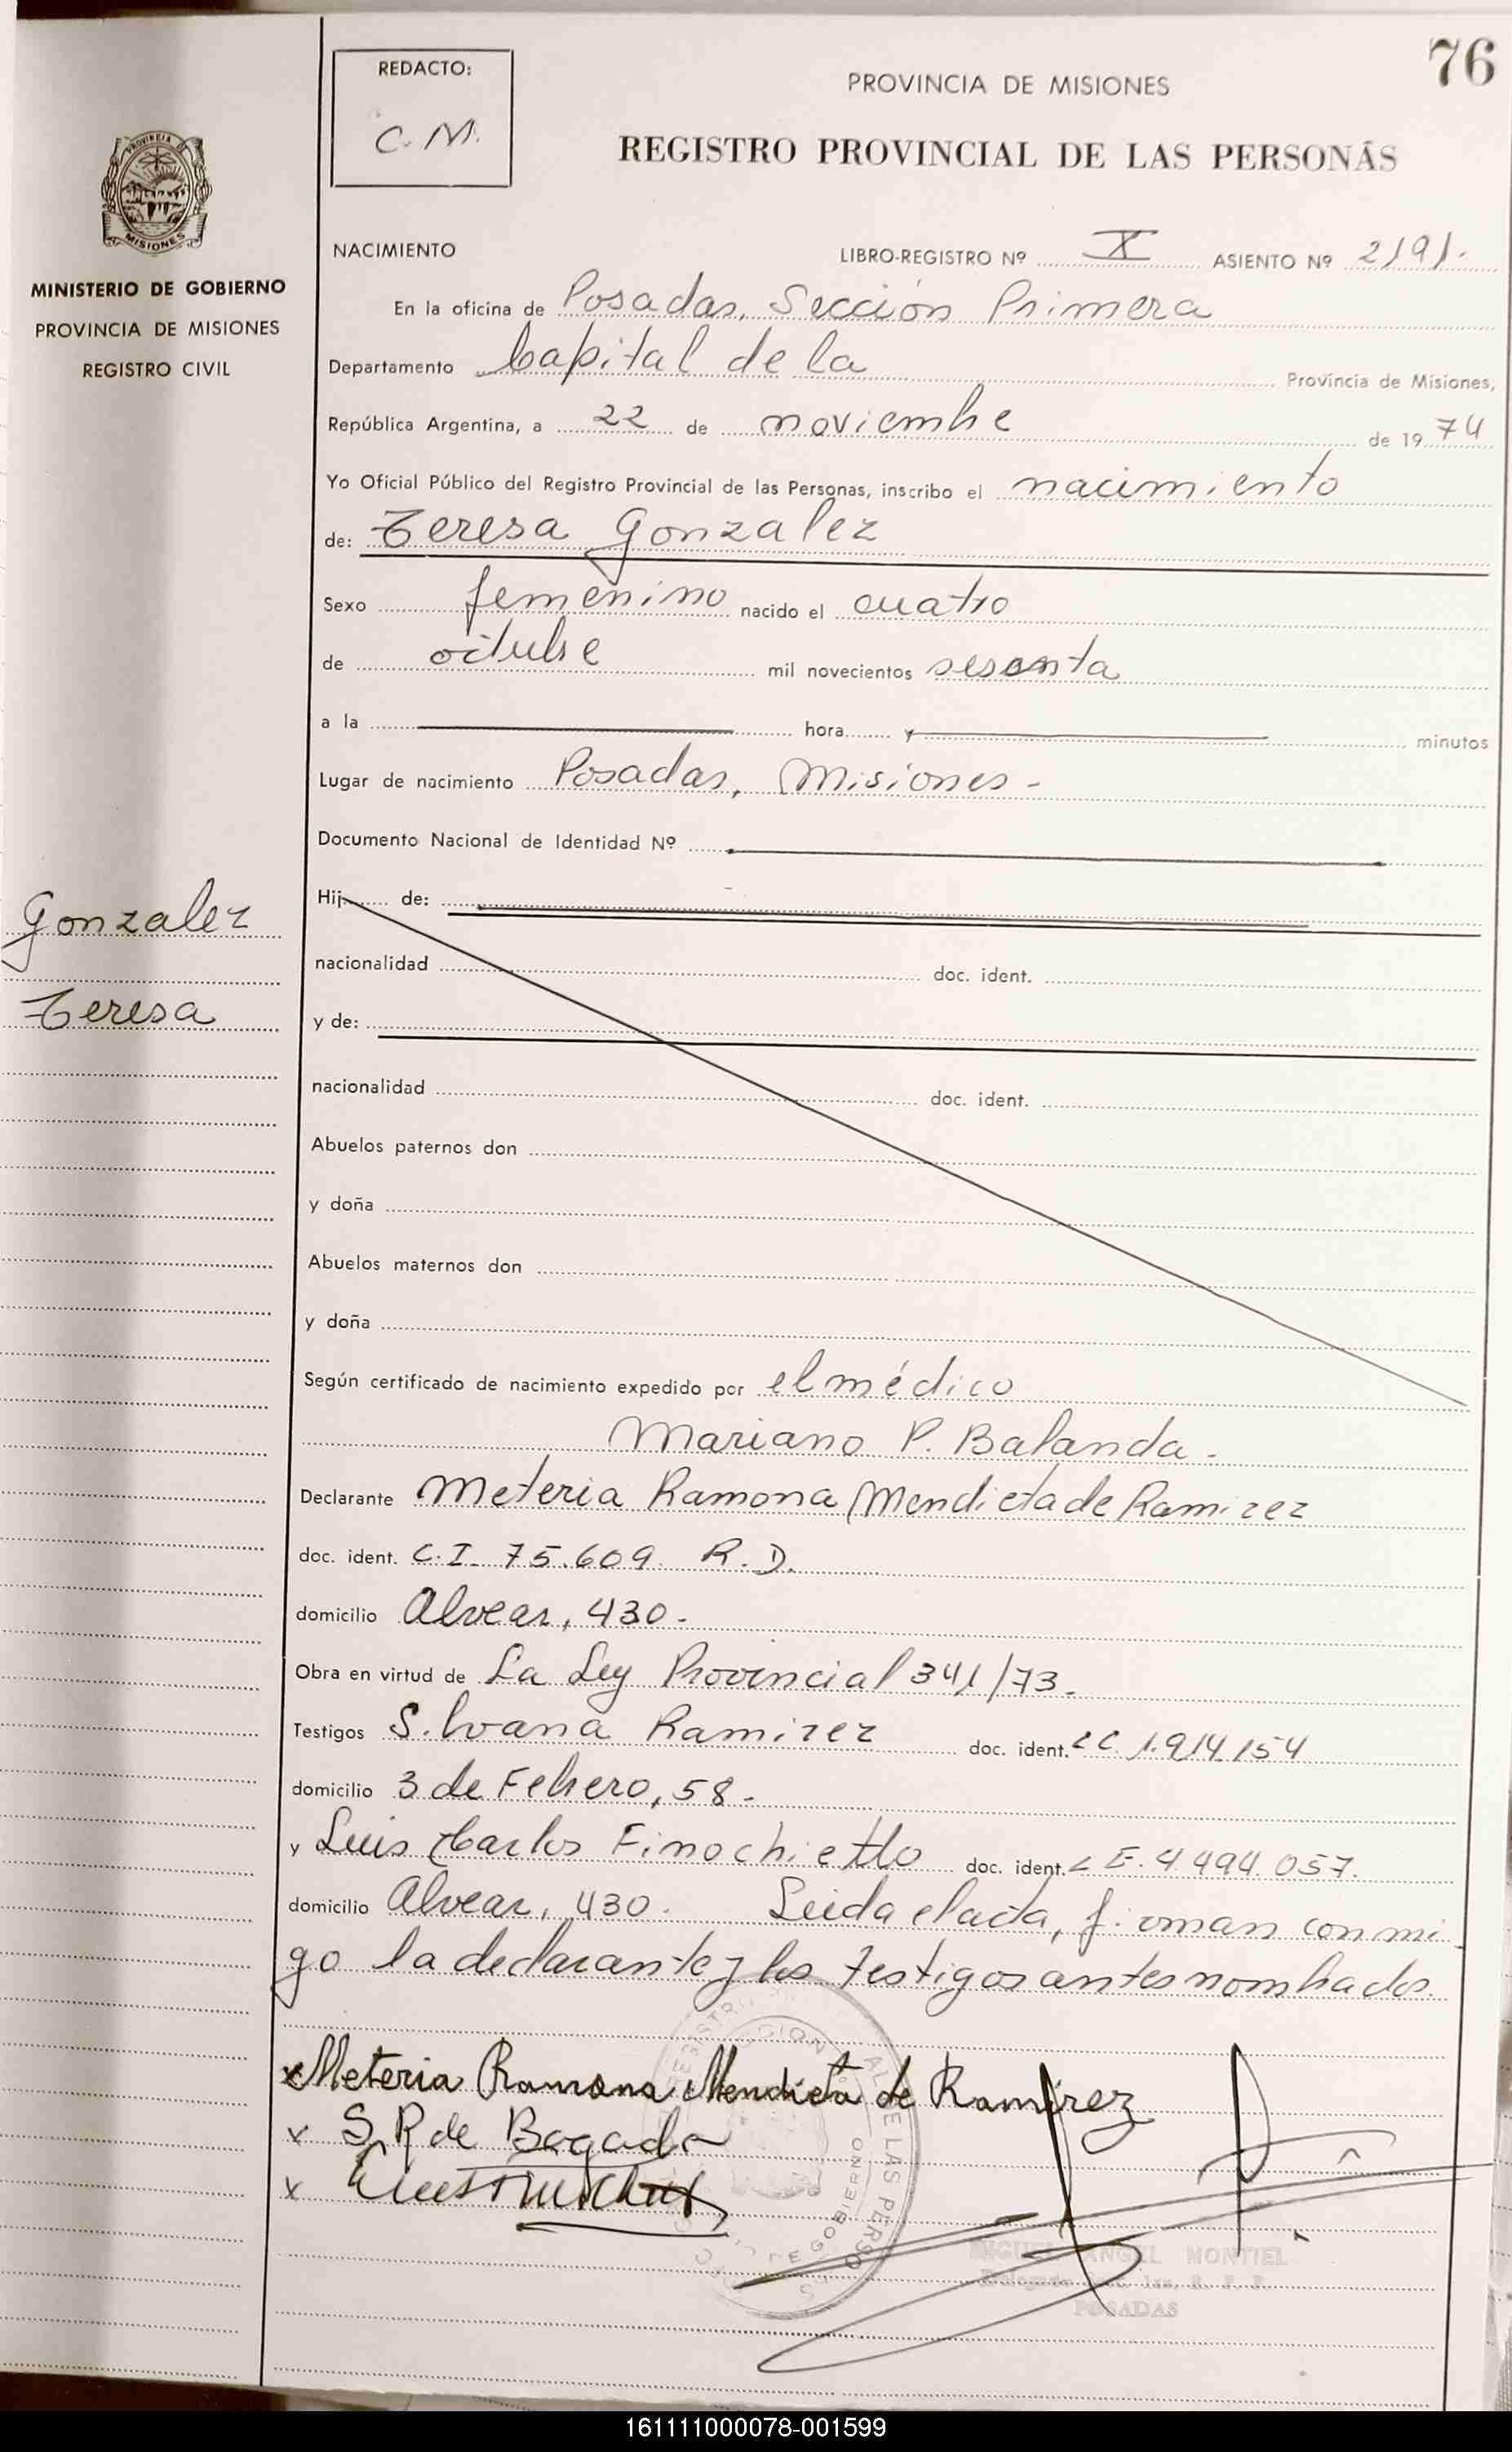 76
REDACTO:
C. M.
PROVINCIA DE MISIONES
REGISTRO PROVINCIAL DE LAS PERSONAS
PROVINCIA
MISIONES
MINISTERIO DE GOBIERNO
PROVINCIA DE MISIONES
REGISTRO CIVIL
NACIMIENTO LIBRO-REGISTRO Nº X ASIENTO Nº 2191.
En la oficina de Posadas, Sección Primera
Departamento Capital de la Provincia de Misiones,
República Argentina, a 22 de noviembre de 1974
Yo Oficial Público del Registro Provincial de las Personas, inscribo el nacimiento
de: Teresa Gonzalez
Sexo femenino nacido el cuatro
de octubre mil novecientos sesenta
a la hora y minutos
Lugar de nacimiento Posadas, Misiones -
Documento Nacional de Identidad Nº
Gonzalez
Teresa
Hij de:
nacionalidad doc. ident.
y de:
nacionalidad doc. ident.
Abuelos paternos don
y doña
Abuelos maternos don
y doña
Según certificado de nacimiento expedido por el médico
Mariano P. Balanda -
Declarante Meteria Ramona Mendieta de Ramirez
doc. ident. C.I. 75.609. R.D.
domicilio Alvear, 430 -
Obra en virtud de La Ley Provincial 341/73 -
Testigos Silvana Ramirez doc. ident. LC. 1.914.154
domicilio 3 de Febrero, 58 -
y Luis Carlos Finochietto doc. ident. L E. 4.494.057.
domicilio Alvear, 430. Leida el acta, firman conmi
go la declarante y los testigos antes nombrados.
x Meteria Ramona Mendieta de Ramirez
x S. R de Bogado
x
MIGUEL ANGEL MONTIEL
POSADAS
161111000078-001599